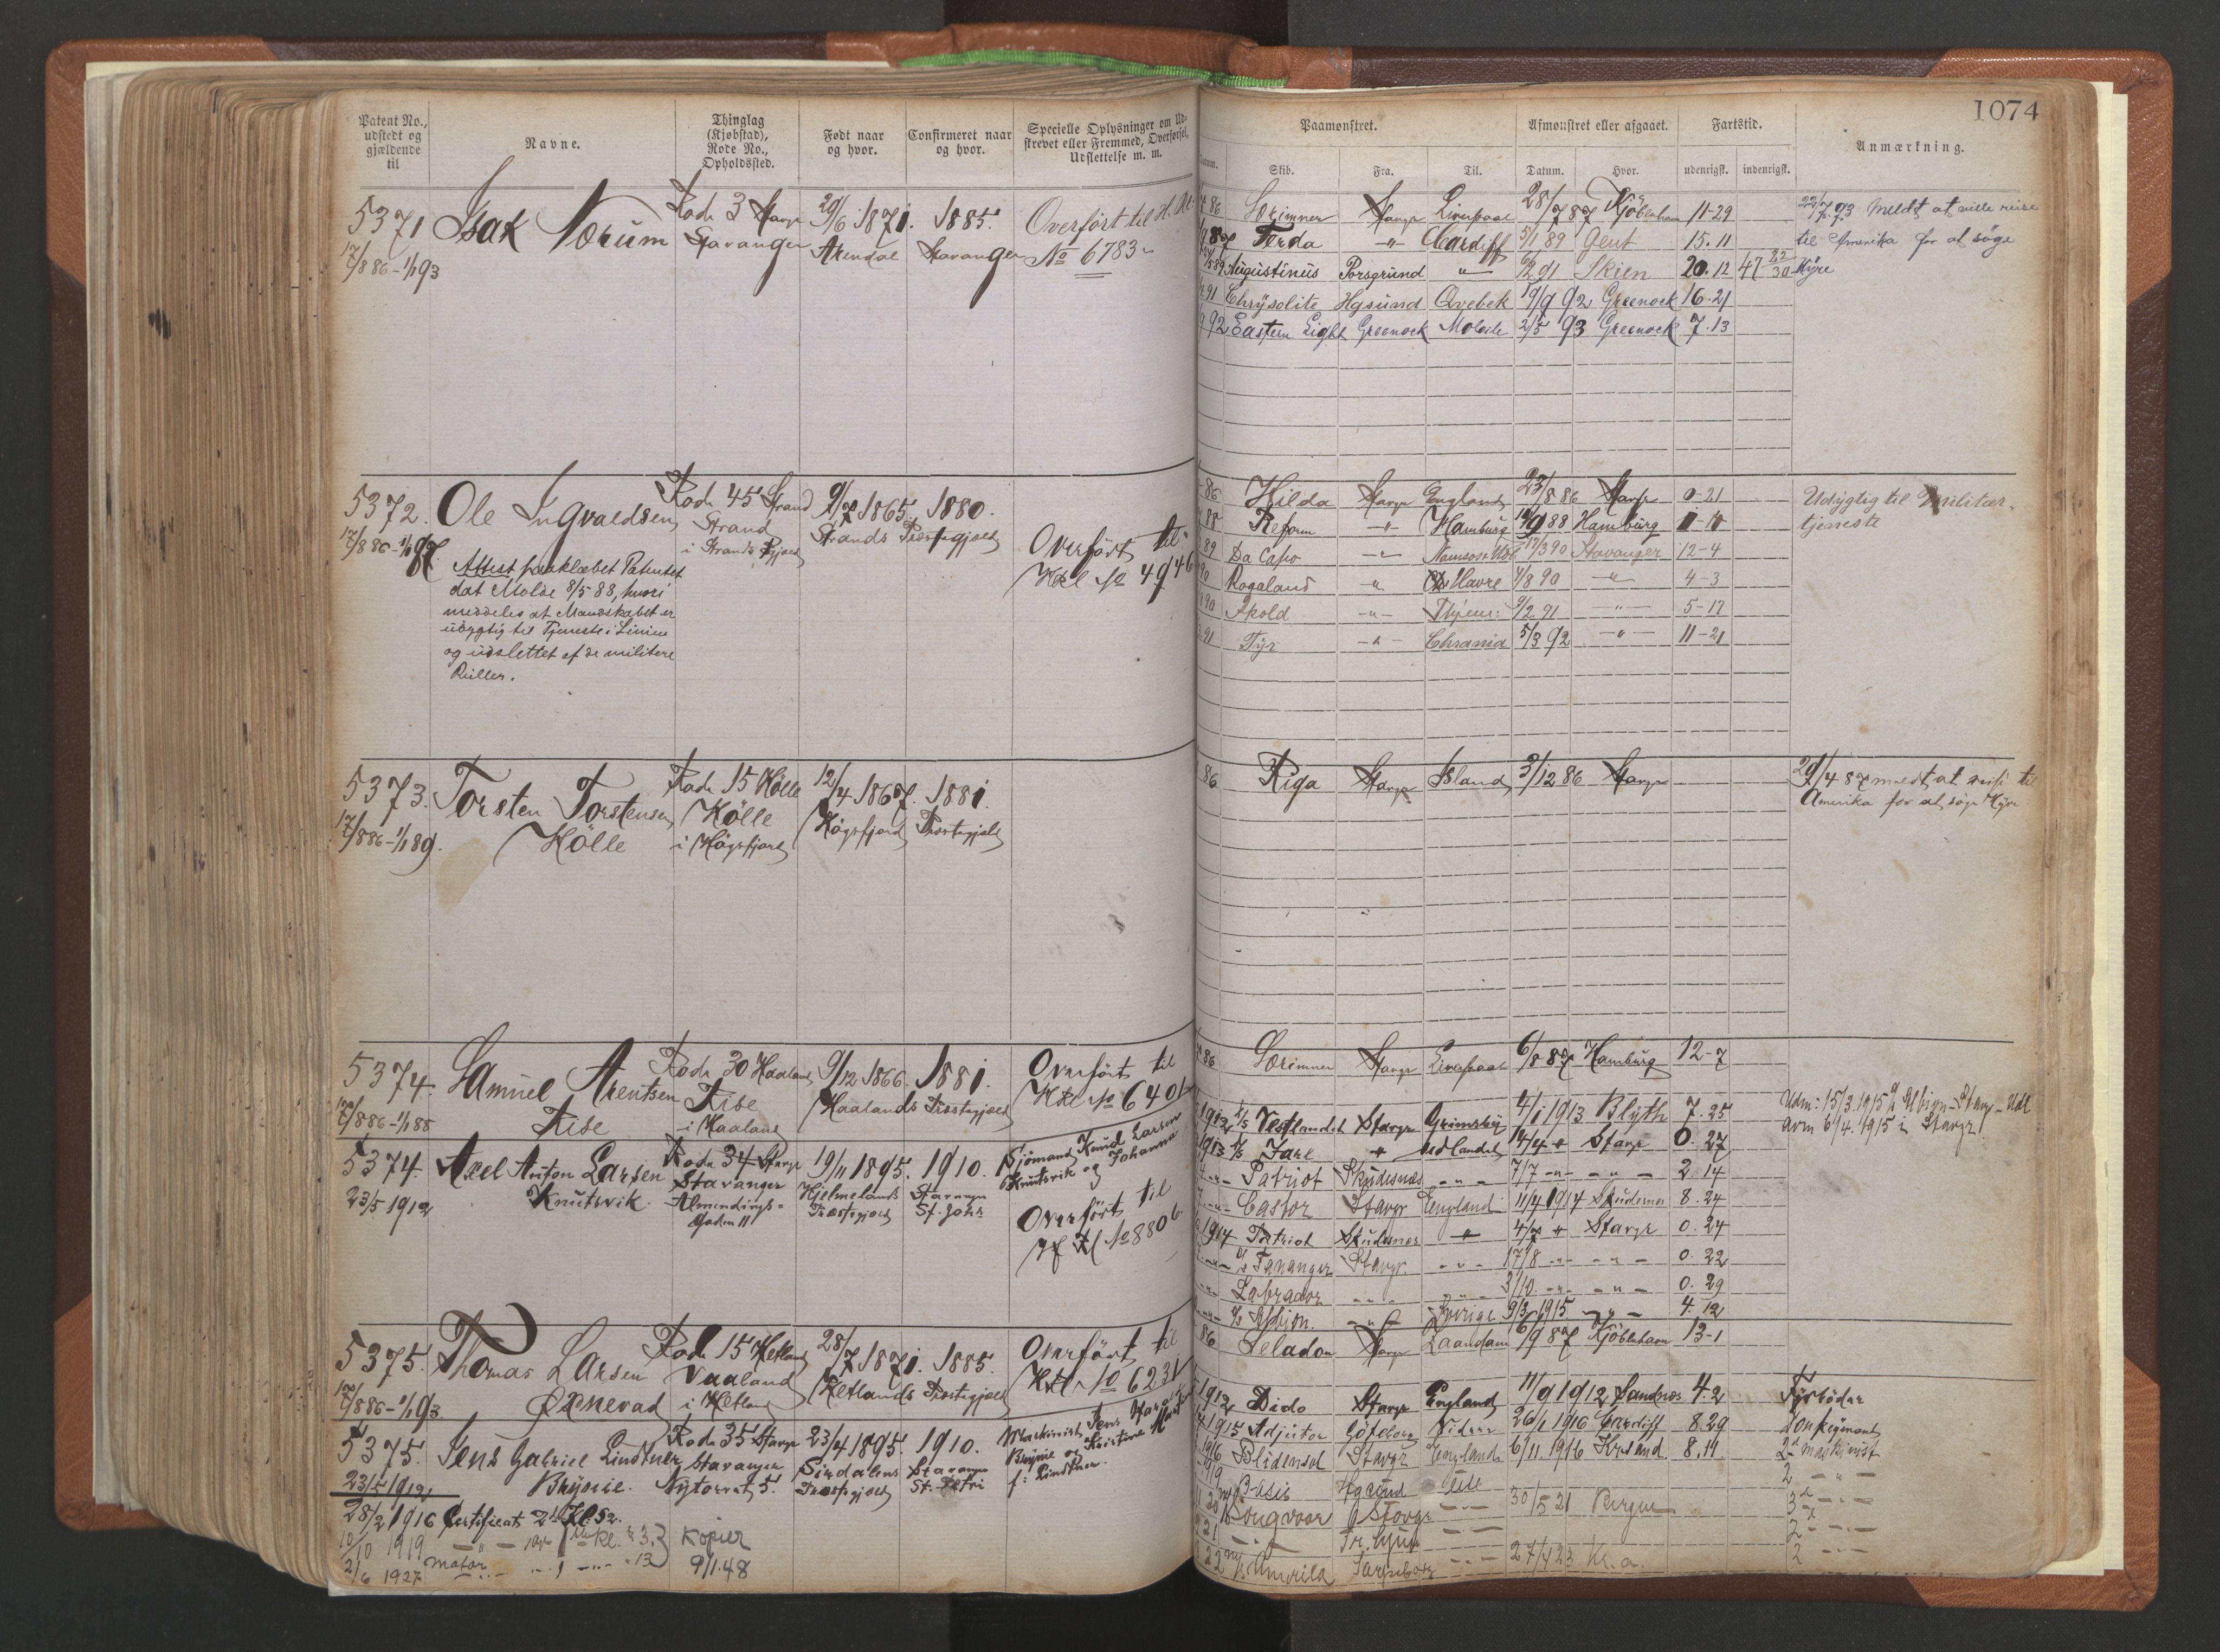 Patent No., udstedt og gjældende til
Navne.
Thinglag (Kjøbstad), Rode No., Opholdssted.
Født naar og hvor.
Confirmeret naar og hvor.
Specielle Oplysninger om Udskrevet eller Fremmed, Overførsel, Udslettelse m. m.
5371 Isak Norum Rode 3 Stavgr 29/6 1871. 1885. Overført til H. Rl.
17/8 86 - 1/1 93 Stavanger Arendal Stavanger No 6783
5372. Ole Ingvaldsen Rode 45 Strand 9/7 1865. 1880.
17/8 86 - 1/1 87 Strand Strands Præstegjæld Overført til
i Strands Pgjæld HRl No 4946
Attest paaklæbet Patentet
dat Molde 8/5 88, hvori
meddeles at Mandskabet er
udygtig til Tjeneste i Linien
og udslettet af de militære
Ruller.
5373. Torsten Torstensen Rode 15 Hölle 12/4 1867. 1881.
17/8 86 - 1/1 89. Hölle Hölle Högsfjord Præstegjæld
i Högsfjord
5374. Samuel Arentsen Rode 30 Haaland 9/12 1866. 1881. Overført til
17/8 86 - 1/1 88 Rise Rise Haalands Præstegjæld HRl No 6401
i Haaland
5374. Axel Anton Larsen Rode 34 Stavgr 19/11 1895. 1910. Sjömand Knud Larsen
23/5 1912 Knutsvik Stavanger Hjelmelands Stavanger Knutsvik og Johanna
Almendings- Præstegjæld St. Johs
gaden 11 Overført til
H Rl No 8806
5375. Thomas Larsen Rode 15 Hetland 28/7 1871. 1885. Overført til
17/8 86 - 1/1 93 Øxnevad Vaaland Hetlands Præstegjæld HRl No 6231
i Hetland
5375. Jens Gabriel Lindtner Rode 35 Stavgr 23/4 1895. 1910. Maskinist Jens
23/5 1912 Bryne. Stavanger Sirdalens Stavanger Bryne og Kristine
Nytorvet 5. Præstegjæld St. Petri f: Lindtner
28/2 1916 Certificat 2d Kl. 52.
10/10 1919 Kopier
2/6 1927 Motor 13 9/1.48
1074
Paamønstret.
Afmønstret eller afgaaet.
Fartstid.
Anmærkning.
Datum. Skib. Fra. Til. Datum. Hvor. udenrigsk. indenrigsk.
86 Sörimner Stavgr Liverpool 28/7 87 Kjöbenhavn 11-29 22/7 93 Meldt at ville reise
87 Terda " Cardiff 5/1 89 Gent 15.11 til Amerika for at söge
89 Augustinus Porsgrund " 6/2 91 Skien 20.12 47 22/30 Hyre
91 Chrysolite Hgsund Qvebek 19/9 92 Greenock 16.21
92 Eastern Light Greenock Mobile 2/5 93 Greenock 7.13
86 Hilda Stavgr England 23/8 86 Stavgr 0-21 Udygtig til Militær-
88 Reform " Hamburg 88 Hamburg tjeneste
89 Da Capo " Namsos 17/3 90 Stavanger 12-4
90 Rogaland " Havre 7/8 90 " 4-3
90 Skold " 9/2 91 " 5-17
91 Tyr " Chrania 5/3 92 " 11-21
86 Riga Stavgr Island 3/12 86 Stavgr 29/4 87 meldt at reise til
Amerika for at söge Hyre
86 Sörimner Stavgr Liverpool 6/8 87 Hamburg 12-7
1912 Vestlandet Stavgr Grimsby 4/1 1913 Blyth 7.25 Udm: 15/3 1915 Albion - Stavgr - Udl
1913 Jarl " Udlandet 14/4 " Stavgr 0.27 avm 6/4 1915 i Stavgr
" Patriot Skudesnæs " 7/7 " " 2.14
" Castor Stavgr England 11/4 1914 Skudesnes 8.24
1914 Patriot Skudesnes " 4/7 " Stavgr 0.24
" Tananger Stavgr. " 17/8 " " 0.22
" Labrador " " 3/10 " " 0.29
" Albion " Sverige 9/3 1915 " 4.12
86 Seladon Stavgr Zaandam 16/9 87 Kjöbenhavn 13-1
1912 Dido Stavgr England 11/9 1912 Sandnes 4.2 Fyrböder
1915 Adjutor Göteborg 26/1 1916 Cardiff 8.29 Donkeymand
1916 Blidensol Stavgr England 6/11 1916 Krsand 8.14 2d maskinist
1919 Basis Hgsund 2 - " -
20 Songvaar Stavgr " 30/5 21 Bergen 3d - " -
21 - " - 2 - " -
22 Sarpsborg " 27/1 23 Kr.a. 2 - " -